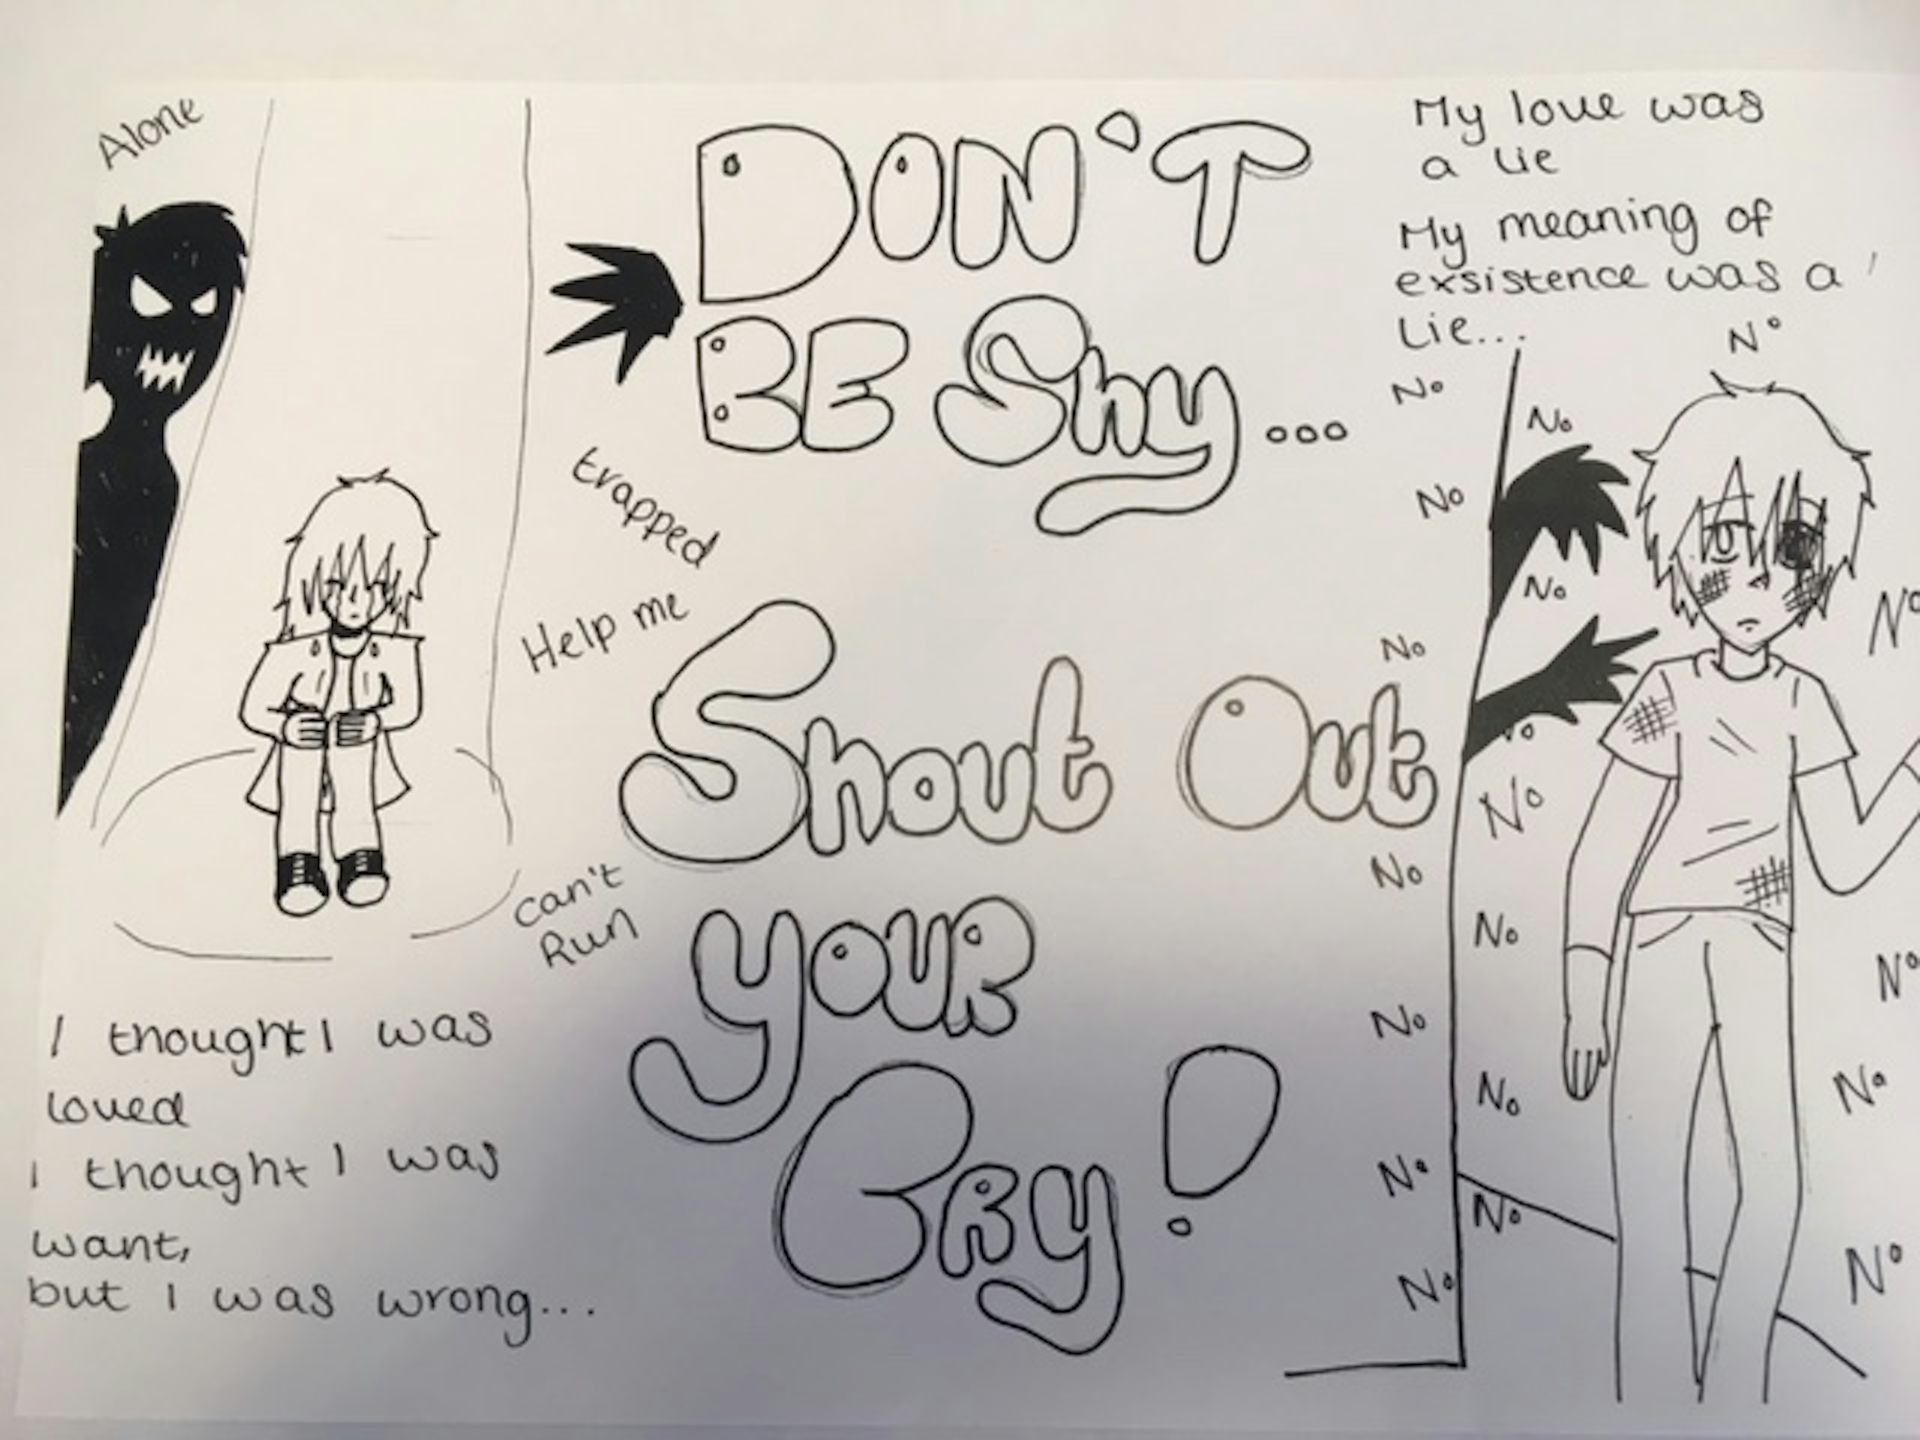 Alone
DON'T
BE Shy...
trapped
Help me
Shout Out
can't
Run
YOUR
CRY!
I thought I was
loved
I thought I was
want,
but I was wrong...
My love was
a lie
My meaning of
exsistence was a
lie...
No
No
No
No
No
No
No
No
No
No
No
No
No
No
No
No
No
No
No
No